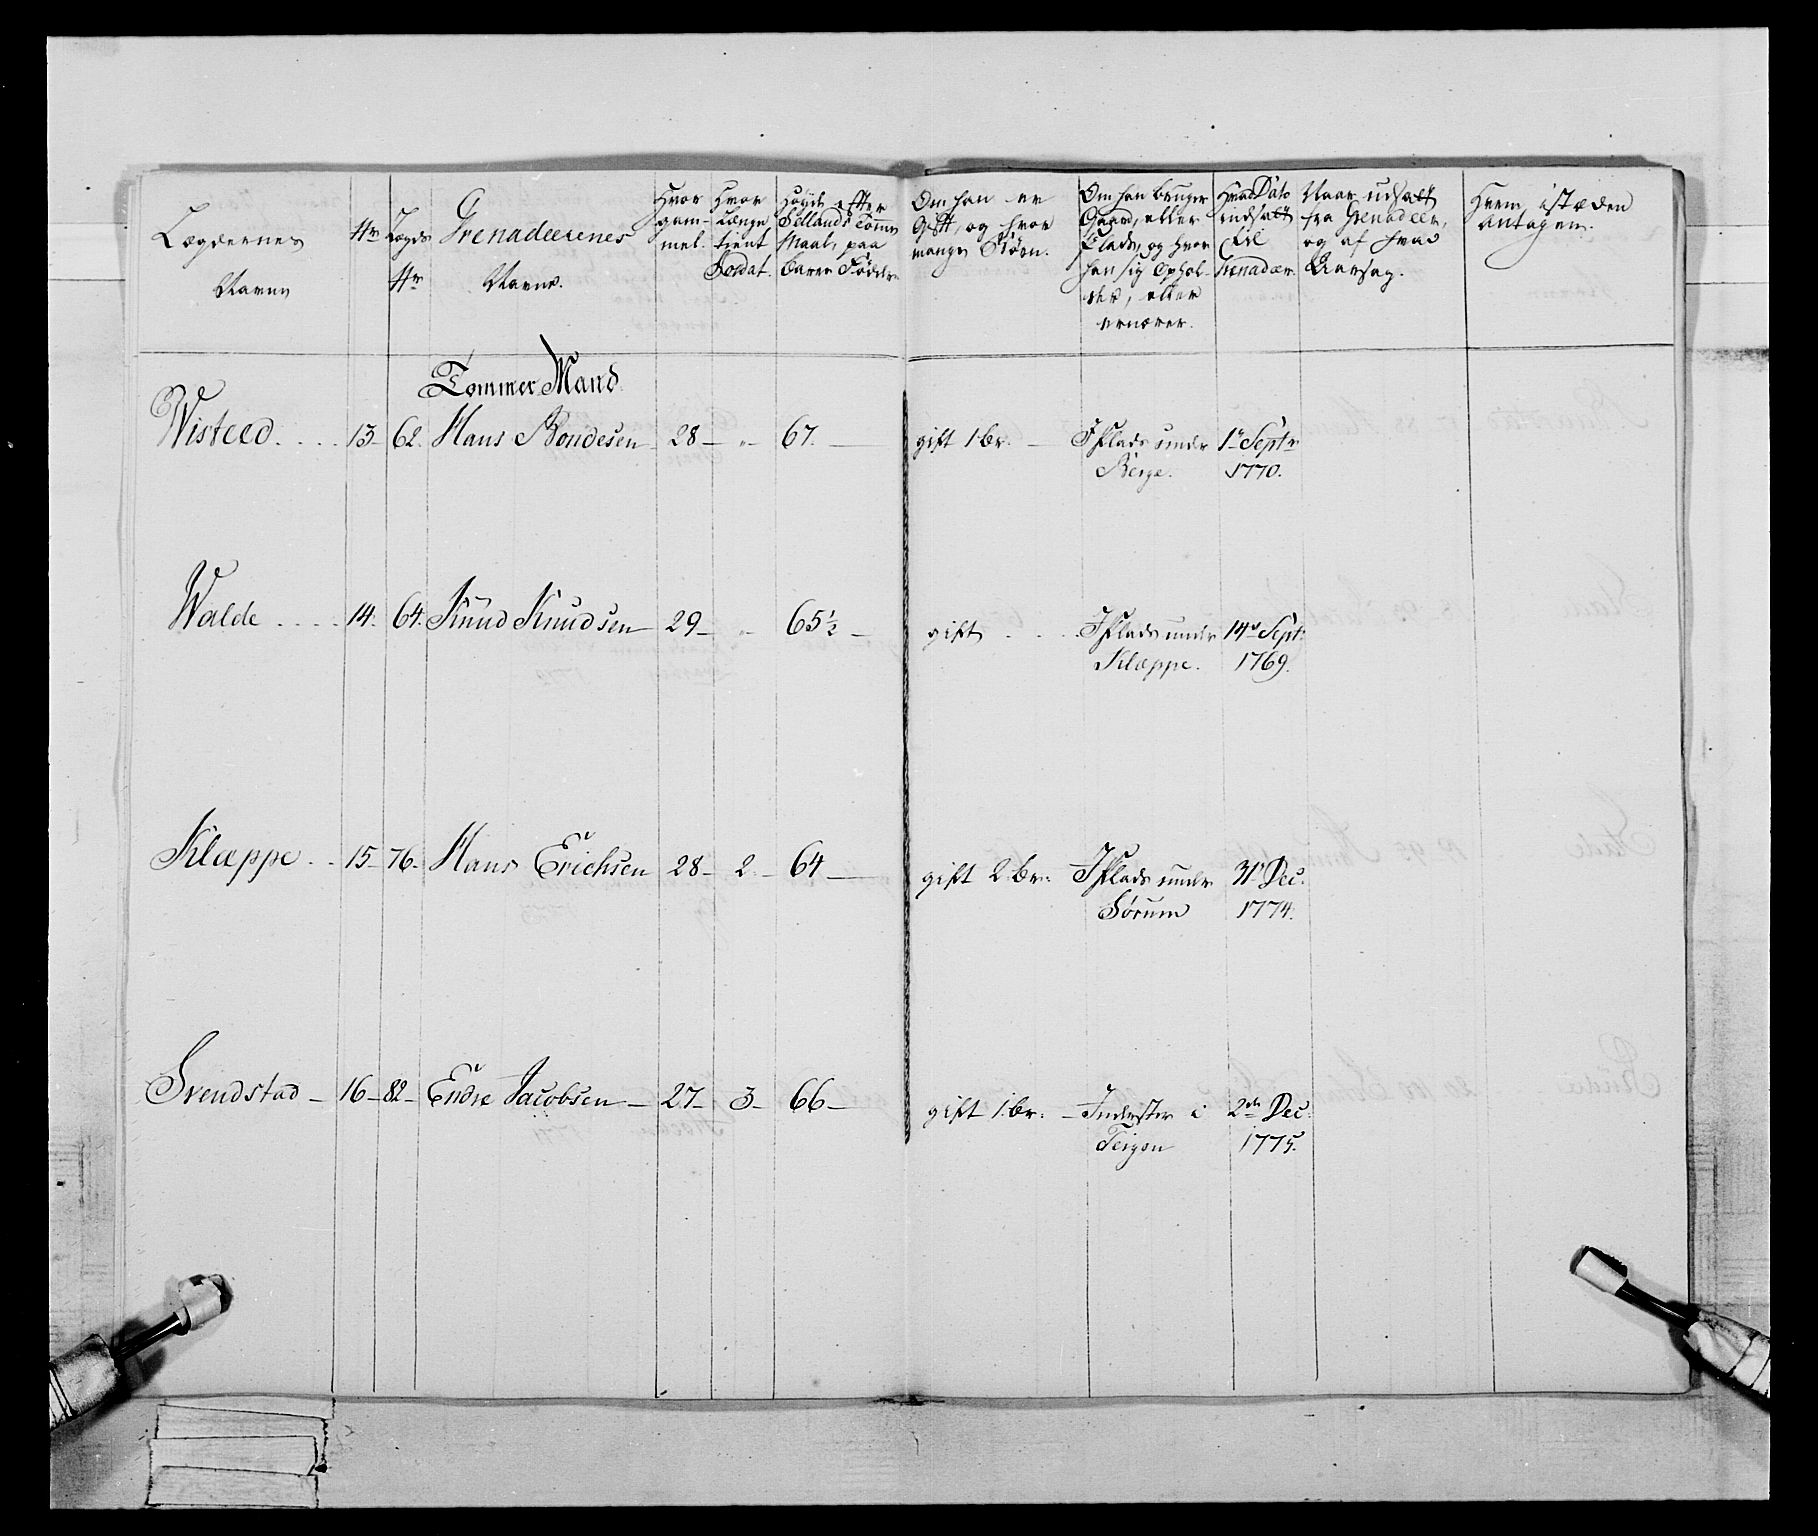 Lægdernes Navne
No
Lægds No
Grenadeerenes Navne.
Hvor gam- mel.
Hvor Længe tient Soldat.
Høyde efter Sellands Tomme Maal, paa bare Fødder
Om han er Gift, og hvor mange Børn.
Om han bruger Gaard, eller Plads, og hvor han sig Ophol- der, eller ernærer.
Hvad Dato udsatt til Grenadeer.
Naar udsatt fra Grenadeer, og af hvad Aarsag.
Hvem i stæden antagen.
Tommer Mand
Wisteed .... 13 62. Hans Bondesen 28 — „ — 67. — gift 1 br. — I Plads under 1te Septr
Berge. 1770.
Walde .... 14. 64. Knud Knudsen 29 — „ 65½ — gift . . . I Plads under 14de Septr
Klæppe. 1769.
Klæppe .. 15 — 76. Hans Erichsen 28 — 2. — 64 — gift 2 br. I Plads under 31te Dec.
Sørum 1774.
Svendstad — 16 — 82 — Endre Jacobsen — 27 — 3 — 66 — gift 1 br. — Inderster i 2den Dec.
Teigen 1775.